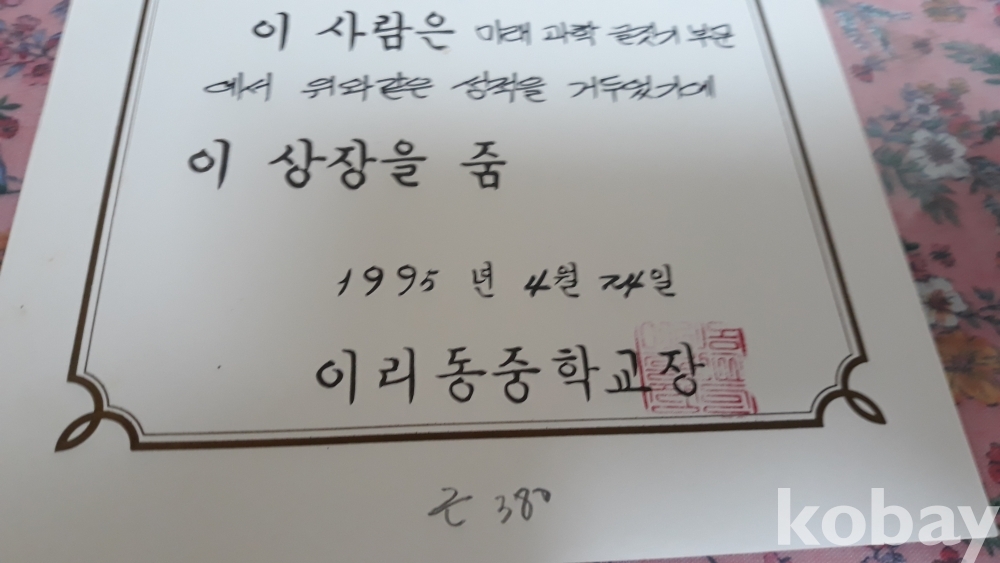 이 사람은 미래 과학 글짓기 부문
에서 위와같은 성적을 거두었기에
이 상장을 줌
1995 년 4월 24일
이리동중학교장
380
kobay